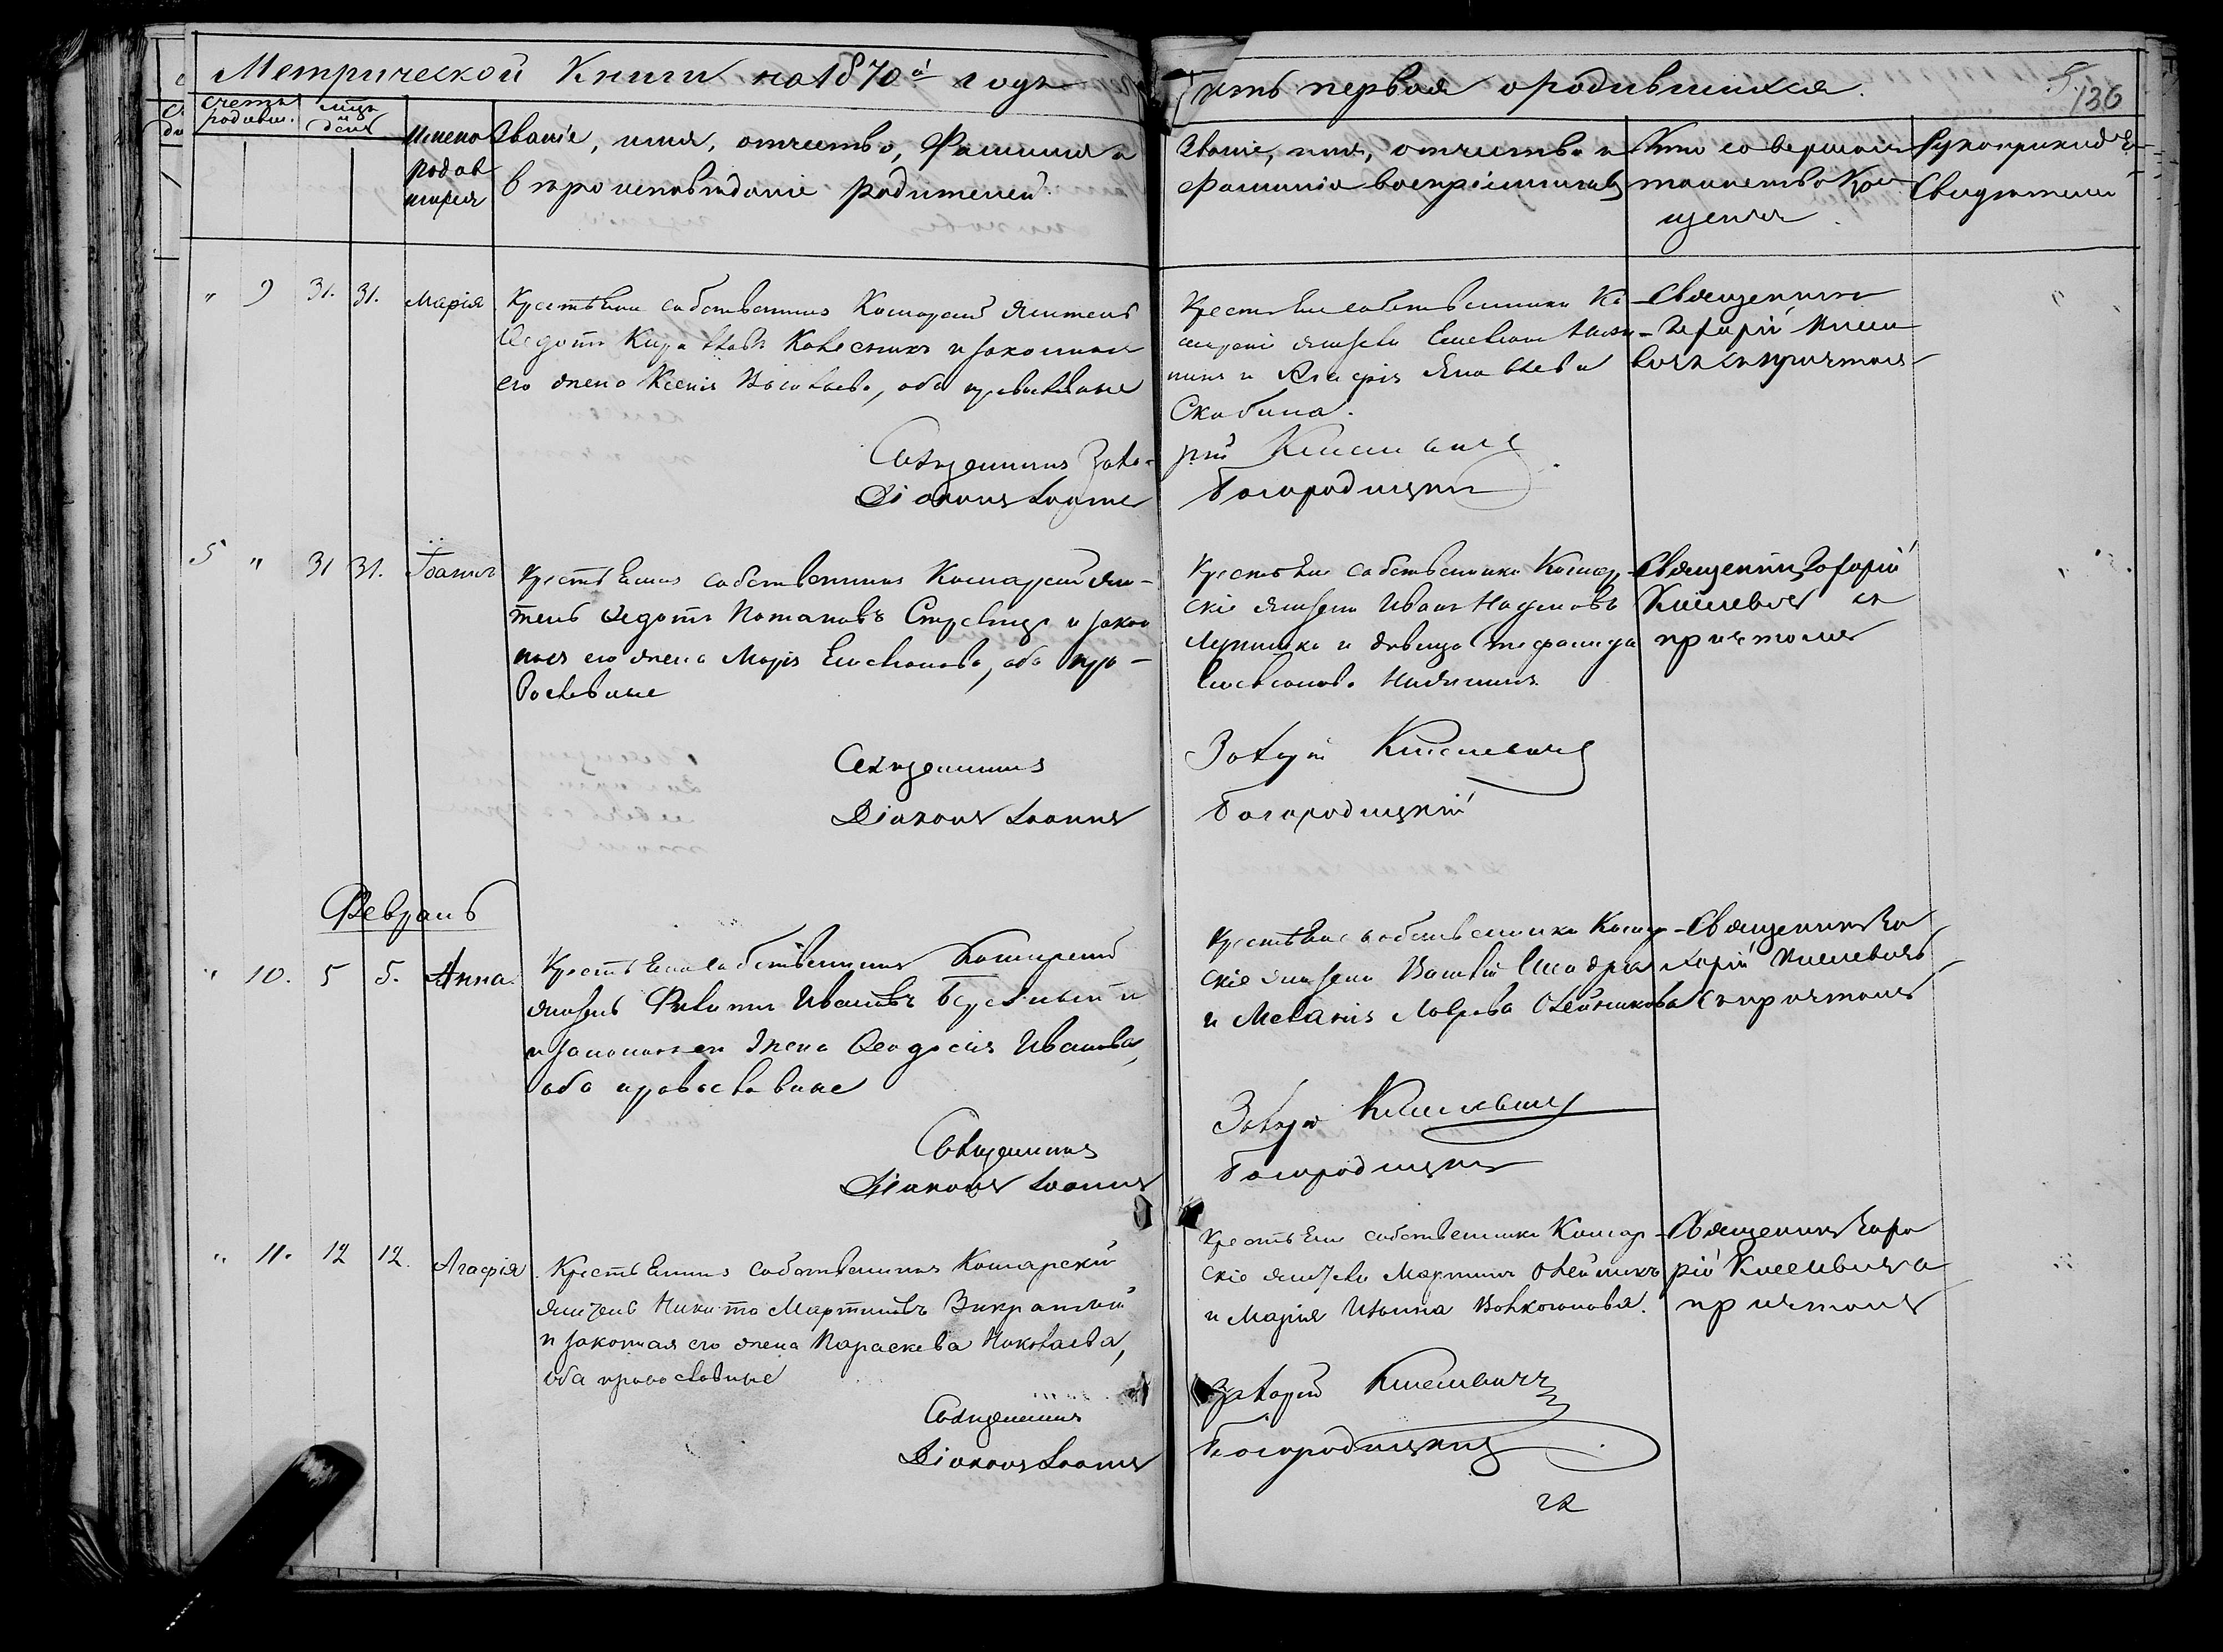 Метрической Книги на 1870й годъ
Часть первая о родившихся.
5.
136
Счетъ родивш.
мцъ и день
Имена родив шихся
Званіе, имя, отчество, Фамилия и
в вроисповѣданіе родителей.
Званіе, имя, отчество и
фамилія воспріемниковъ
Кто совершалъ
таинство Кре
щения.
Рукоприклад
Свидетелей
" 9 31. 31. Марія
Крестьянинъ собственникъ Комарскій житель
Ѳедотъ Колесникъ и законная
его жена Ксенія, оба православные
Священникъ Заха-
Діаконъ Іоаннъ
Крестьяне собственники Ко
марскіе жители Емельянъ
и Агафія
Скабина.
рій Киселевичъ
Богородицкій
Священникъ
Захарій Кисе
левичъ съ причтомъ
5 " 31 31. Іоаннъ
Крестьянинъ собственникъ Комарскій жи-
тель Ѳедотъ Потаповъ и закон
ная его жена Марія Емельянова, оба пра-
вославные
Священникъ
Діаконъ Іоаннъ
Крестьяне собственники Комар-
скіе жители Иванъ Наумовъ
и дѣвица Стефанида
Захарій Киселевичъ
Богородицкій
Священникъ Захарій
Киселевичъ съ
причтомъ
Февраль
" 10. 5 5. Анна.
Крестьянинъ собственникъ Комарскій
житель Филиппъ Ивановъ
и законная его жена Ѳеодосія Иванова,
оба православные
Священникъ
Діаконъ Іоаннъ
Крестьяне собственники Комар-
скіе жители Василій
и Меланія Лаврова Олейникова
Захарій Киселевичъ
Богородицкій
Священникъ За
харій Киселевичъ
съ причтомъ
" 11. 12 12. Агафія.
Крестьянинъ собственникъ Комарскій
житель Никита Мартиновъ
и законная его жена Параскева Николаева,
оба православные
Священникъ
Діаконъ Іоаннъ
Крестьяне собственники Комар-
скіе жители Мартинъ Олейникъ
и Марія Волкогонова.
Захарій Киселевичъ
Богородицкій
Священникъ Заха
рій Киселевичъ с
причтомъ